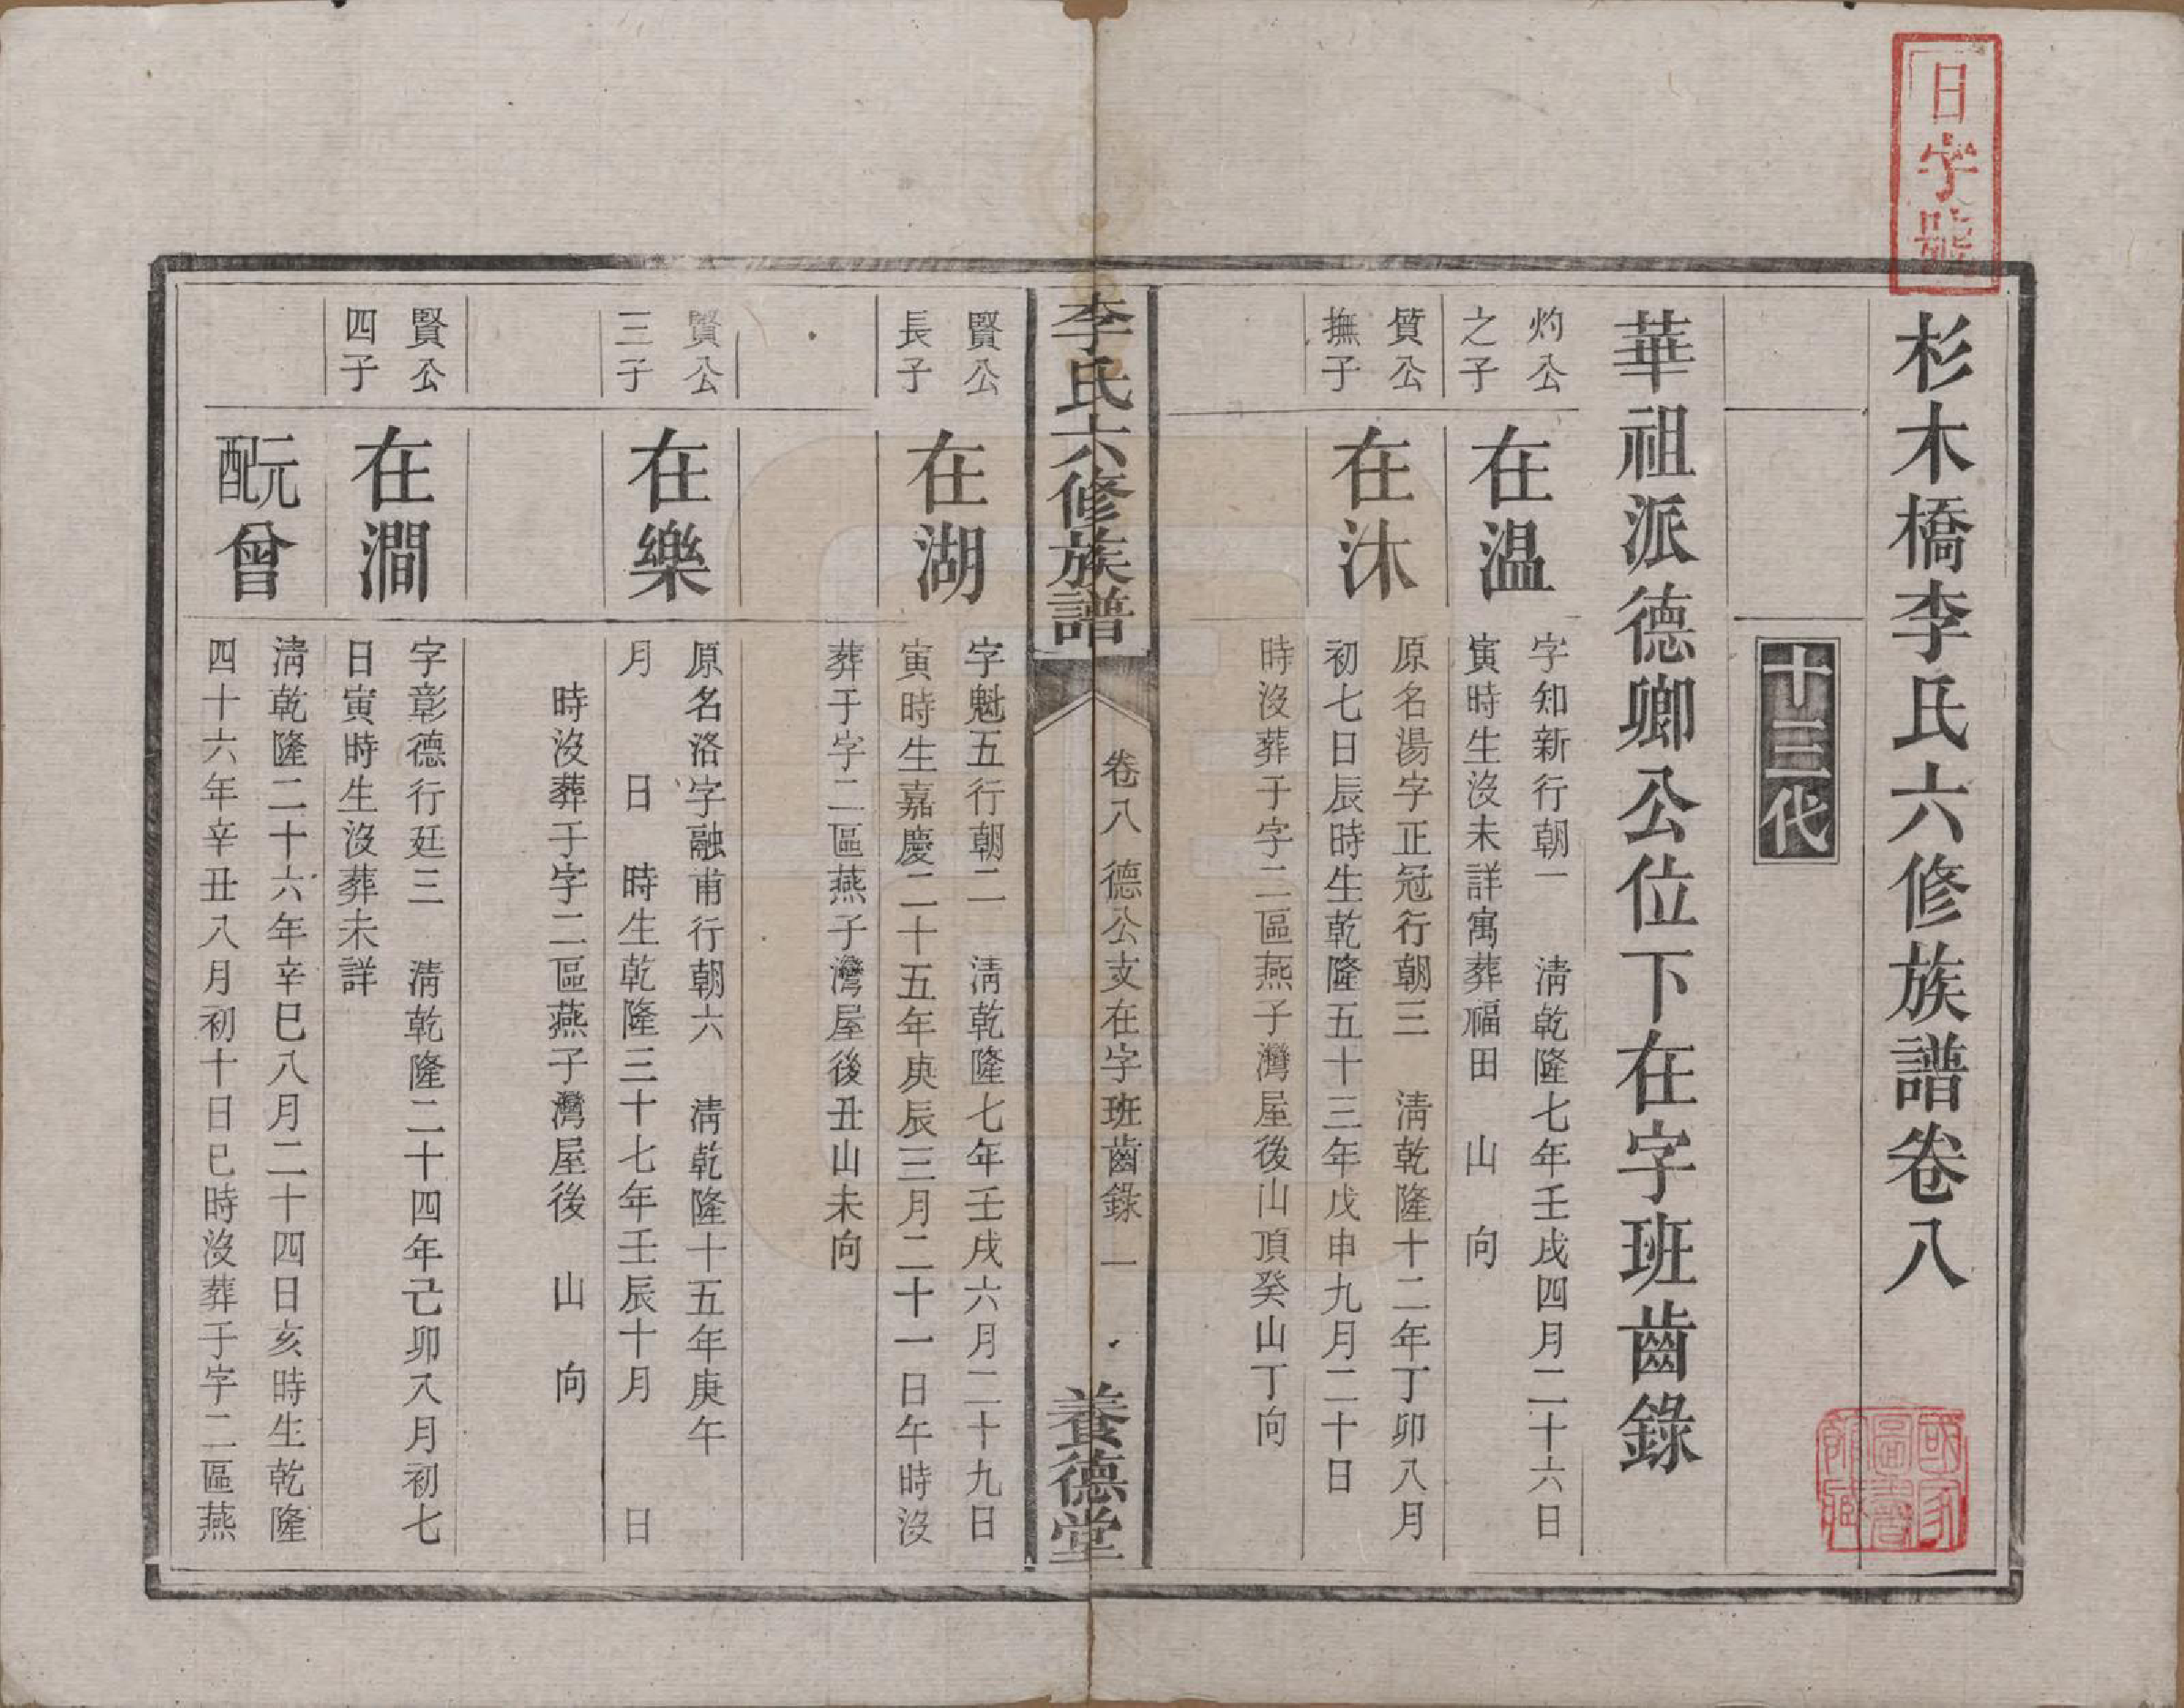 日字號
杉木橋李氏六修族譜卷八
十三代
華祖派德卿公位下在字班齒錄
灼公
之子
在溫
字知新行朝一 淸乾隆七年壬戌四月二十六日
寅時生沒未詳寓葬福田 山 向
質公
撫子
在沐
原名湯字正冠行朝三 淸乾隆十二年丁卯八月
初七日辰時生乾隆五十三年戊申九月二十日
時沒葬于字二區燕子灣屋後山頂癸山丁向
李氏六修族譜
卷八 德公支在字班齒錄 一
養德堂
賢公
長子
在湖
字魁五行朝二 淸乾隆七年壬戌六月二十九日
寅時生嘉慶二十五年庚辰三月二十一日午時沒
葬于字二區燕子灣屋後丑山未向
賢公
三子
在樂
原名洛字融甫行朝六 淸乾隆十五年庚午
月 日 時生乾隆三十七年壬辰十月 日
時沒葬于字二區燕子灣屋後 山 向
賢公
四子
在澗
字彰德行廷三 淸乾隆二十四年己卯八月初七
日寅時生沒葬未詳
元配曾
淸乾隆二十六年辛巳八月二十四日亥時生乾隆
四十六年辛丑八月初十日巳時沒葬于字二區燕
國家圖書館藏